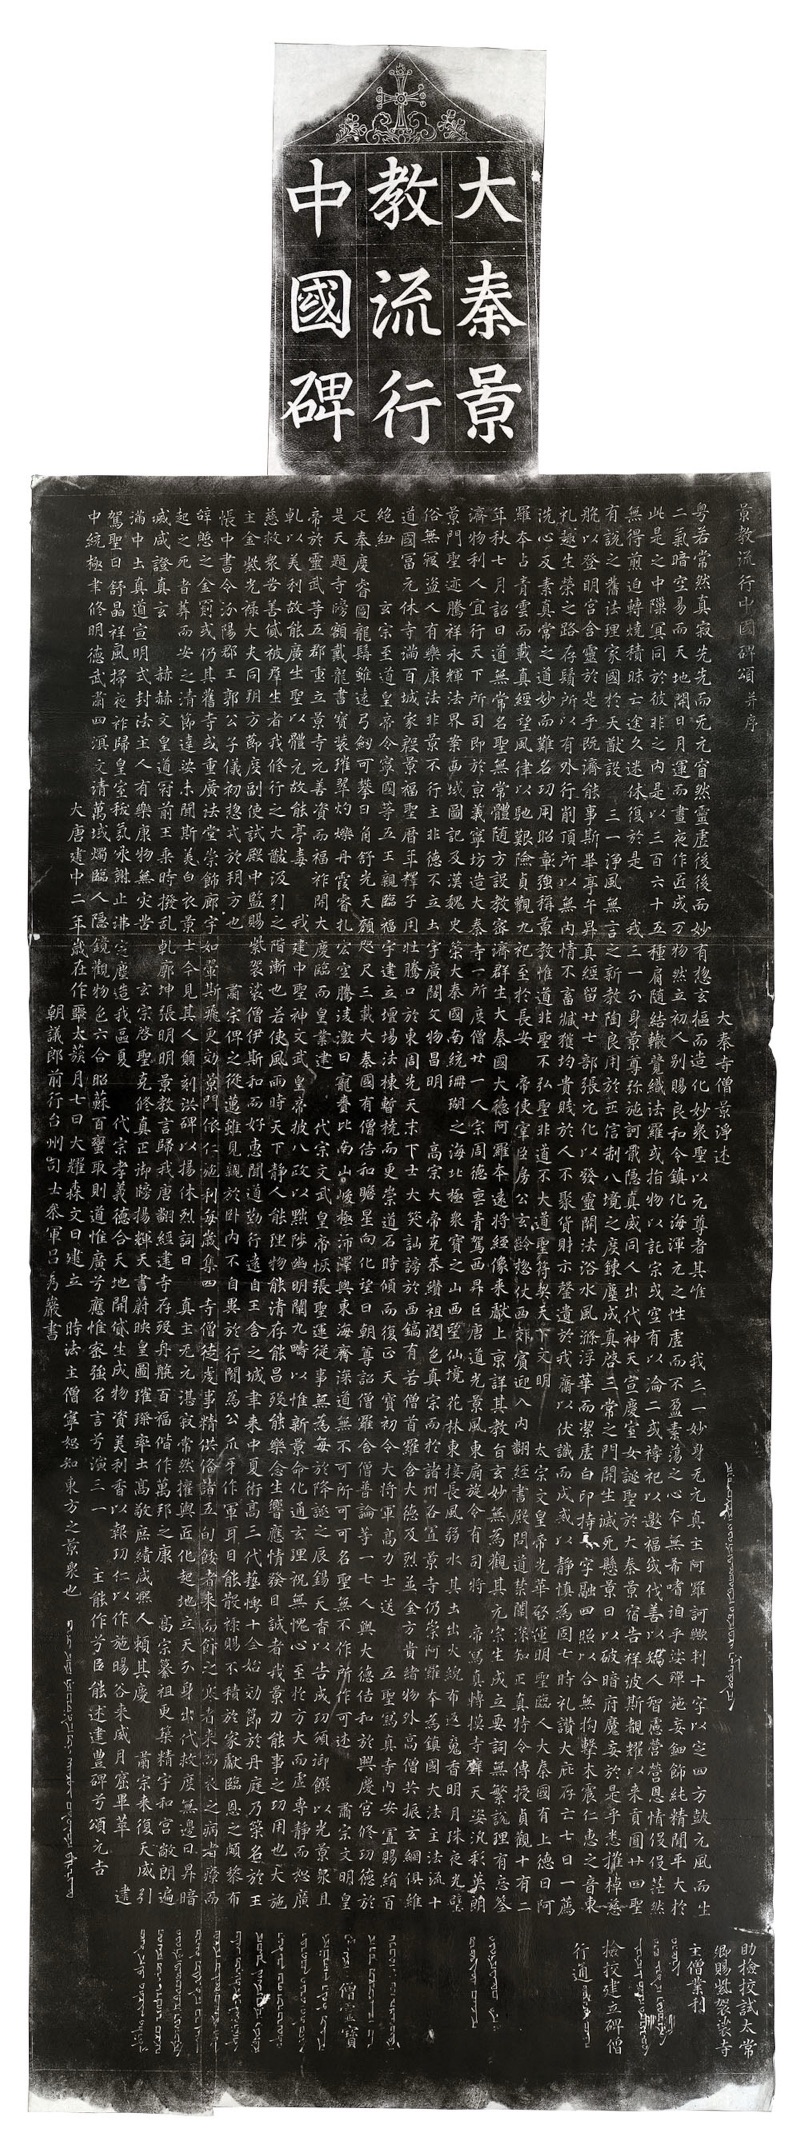 大秦景
教流行
中國碑
景教流行中國碑頌并序
大秦寺僧景淨述
粤若常然真寂先先而无元窅然靈虛後後而妙有惣玄摳而造化妙衆聖以元尊者其唯 我三一妙身无元真主阿羅訶歟判十字以定四方鼓元風而生
二氣暗空易而天地開日月運而晝夜作匠成万物然立初人別賜良和令鎮化海渾元之性虛而不盈素蕩之心本無希嗜洎乎娑殫施妄鈿飾純精閒平大於
此是之中隟冥同於彼非之內是以三百六十五種肩随結轍競織法羅或指物以託宗或空有以淪二或禱祀以邀福或伐善以矯人智慮營營恩情役役茫然
無得煎迫轉燒積昧亡途久迷休復於是 我三一分身景尊弥施訶戢隱真威同人出代神天宣慶室女誕聖於大秦景宿告祥波斯覩耀以來貢圓廿四聖
有說之舊法理家國於大猷設 三一淨風無言之新教陶良用於正信制八境之度鍊塵成真啓三常之門開生滅死懸景日以破暗府魔妄於是乎悉摧棹慈
航以登明宮含靈於是乎既濟能事斯畢亭午昇真經留廿七部張元化以發靈關法浴水風滌浮華而潔虛白印持十字融四照以合無拘擊木震仁惠之音東
礼趣生榮之路存鬚所以有外行削頂所以無內情不畜臧獲均貴賤於人不聚貨財示罄遺於我齋以伏識而成戒以靜慎為固七時礼讚大庇存亡七日一薦
洗心反素真常之道妙而難名功用昭彰强稱景教惟道非聖不弘聖非道不大道聖符契天下文明 太宗文皇帝光華啓運明聖臨人大秦國有上德曰阿
羅本占青雲而載真經望風律以馳艱險貞觀九祀至於長安 帝使宰臣房公玄齡惣仗西郊賓迎入內翻經書殿問道禁闈深知正真特令傳授貞觀十有二
年秋七月詔曰道無常名聖無常體随方設教密濟群生大秦國大德阿羅本遠將經像來獻上京詳其教旨玄妙無為觀其元宗生成立要詞無繁說理有忘筌
濟物利人宜行天下所司即於京義寧坊造大秦寺一所度僧廿一人宗周德喪青駕西昇巨唐道光景風東扇旋令有司將 帝寫真轉摸寺壁天姿汎彩英朗
景門聖迹騰祥永輝法界案西域圖記及漢魏史策大秦國南統珊瑚之海北極衆寶之山西望仙境花林東接長風弱水其土出火綄布返魂香明月珠夜光璧
俗無寇盜人有樂康法非景不行主非德不立土宇廣闊文物昌明 高宗大帝克恭纘祖潤色真宗而於諸州各置景寺仍崇阿羅本為鎮國大法主法流十
道國富元休寺滿百城家殷景福聖曆年釋子用壯騰口於東周先天末下士大笑訕謗於西鎬有若僧首羅含大德及烈並金方貴緒物外高僧共振玄網俱維
絕紐 玄宗至道皇帝令寧國等五王親臨福宇建立壇場法棟暫橈而更崇道石時傾而復正天寶初令大將軍高力士送 五聖寫真寺內安置賜絹百
疋奉慶睿圖龍髯雖遠弓劍可攀日角舒光天顏咫尺三載大秦國有僧佶和瞻星向化望日朝尊詔僧羅含僧普論等一七人與大德佶和於興慶宮修功德於
是天題寺牓額戴龍書寶裝璀翠灼爍丹霞睿扎宏空騰凌激日寵賚比南山峻極沛澤與東海齊深道無不可所可可名聖無不作所作可述 肅宗文明皇
帝於靈武等五郡重立景寺元善資而福祚開大慶臨而皇業建 代宗文武皇帝恢張聖運從事無為每於降誕之辰錫天香以告成功頒御饌以光景衆且
乹以美利故能廣生聖以體元故能亭毒 我建中聖神文武皇帝披八政以黜陟幽明闡九疇以惟新景命化通玄理祝無愧心至於方大而虛專靜而恕廣
慈救衆苦善貸被群生者我修行之大猷汲引之階漸也若使風雨時天下靜人能理物能清存能昌歿能樂念生響應情發目誠者我景力能事之功用也大施
主金紫光祿大夫同朔方節度副使試殿中監賜紫袈裟僧伊斯和而好惠聞道勤行遠自王舍之城聿來中夏術高三代藝博十全始効節於丹庭乃策名於王
帳中書令汾陽郡王郭公子儀初惣戎於朔方也 肅宗俾之從邁雖見親於臥內不自異於行間為公爪牙作軍耳目能散祿賜不積於家獻臨恩之頗黎布
辭憩之金罽或仍其舊寺或重廣法堂崇飾廊宇如翬斯飛更効景門依仁施利每歲集四寺僧徒虔事精供俻諸五旬餧者來而飰之寒者來而衣之病者療而
起之死者葬而安之清節達娑未聞斯美白衣景士今見其人願刻洪碑以揚休烈詞曰 真主无元湛寂常然權輿匠化起地立天分身出代救度無邊日昇暗
滅咸證真玄 赫赫文皇道冠前王乘時撥亂乹廓坤張明明景教言歸我唐翻經建寺存歿舟航百福偕作萬邦之康 高宗纂祖更築精宇和宮敞朗遍
滿中土真道宣明式封法主人有樂康物無災苦 玄宗啓聖克修真正御牓揚輝天書蔚映皇圖璀璨率土高敬庶績咸熙人賴其慶 肅宗來復天威引
駕聖日舒晶祥風掃夜祚歸皇室祅氛永謝止沸定塵造我區夏 代宗孝義德合天地開貸生成物資美利香以報功仁以作施暘谷來威月窟畢萃 建
中統極聿修明德武肅四溟文清萬域燭臨人隱鏡觀物色六合昭蘇百蠻取則道惟廣兮應惟密强名言兮演三一 主能作兮臣能述建豐碑兮頌元吉
大唐建中二年歲在作噩太蔟月七日大耀森文日建立 時法主僧寧恕知東方之景衆也
朝議郎前行台州司士參軍呂秀巖書
助檢校試太常
卿賜紫袈裟寺
主僧業利
檢校建立碑僧
行通
僧靈寶